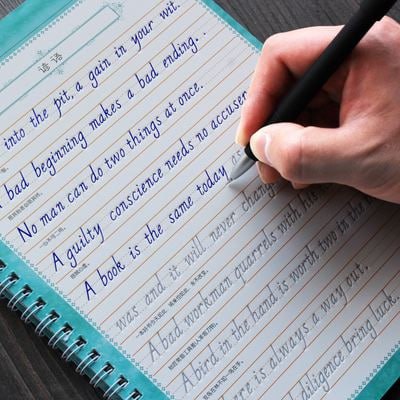 谚语
into the pit, a gain in your wit.
bad beginning makes a bad ending. .
No man can do two things at once.
A guilty conscience needs no accuser
A book is the same today as
was and it will never chang
A bad workman quarrels with his
A bird in the hand is worth two in the
ere is always a way out.
diligence bring luck.